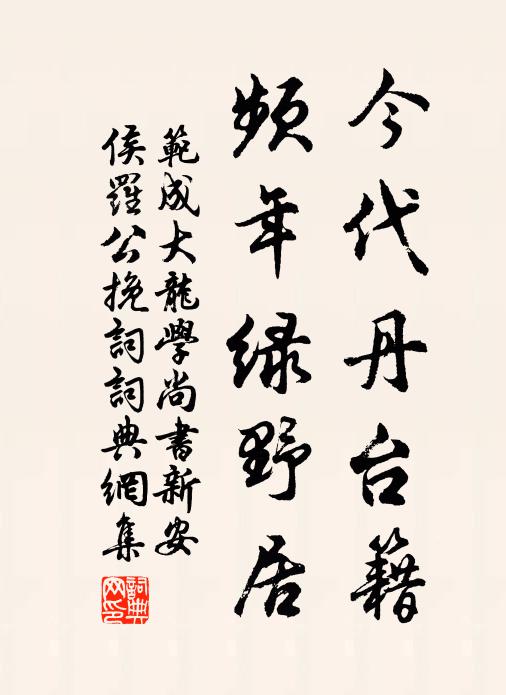 今代丹台籍
频年绿野居
範成大龍學尚書新安
侯羅公挽詞詞典網集
詞典網印